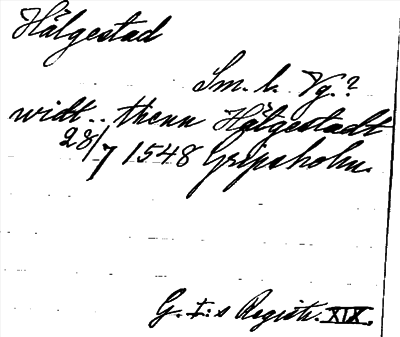 Hälgestad
Sm. l. Vg.?
widt .. thenn Hälgestadt
28/7 1548 Gripsholm.
G. I:s Registr. XIX.